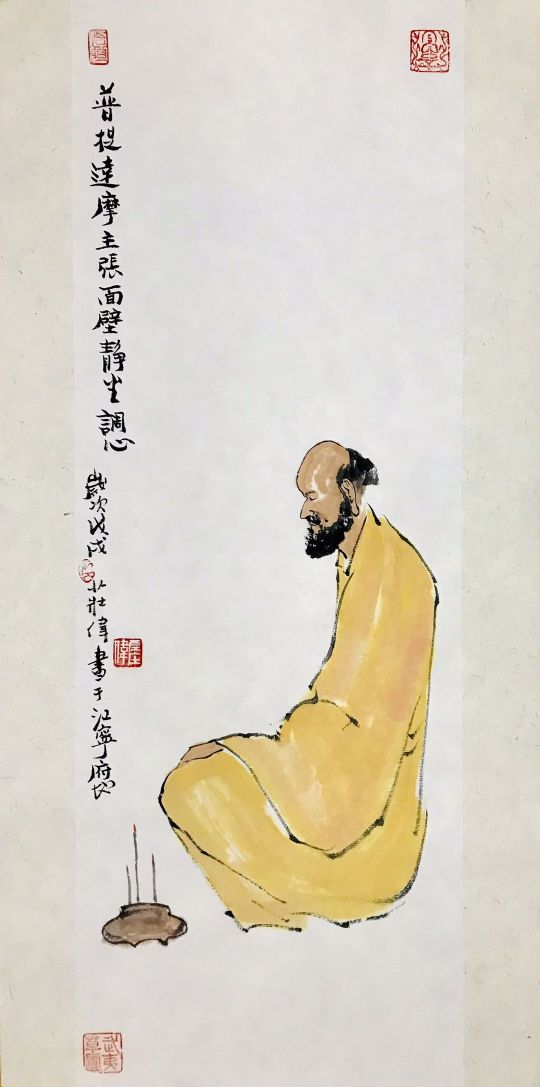 普提達摩主張面壁靜坐調心
歲次戊戌 壯偉書于江寧府地
武夷